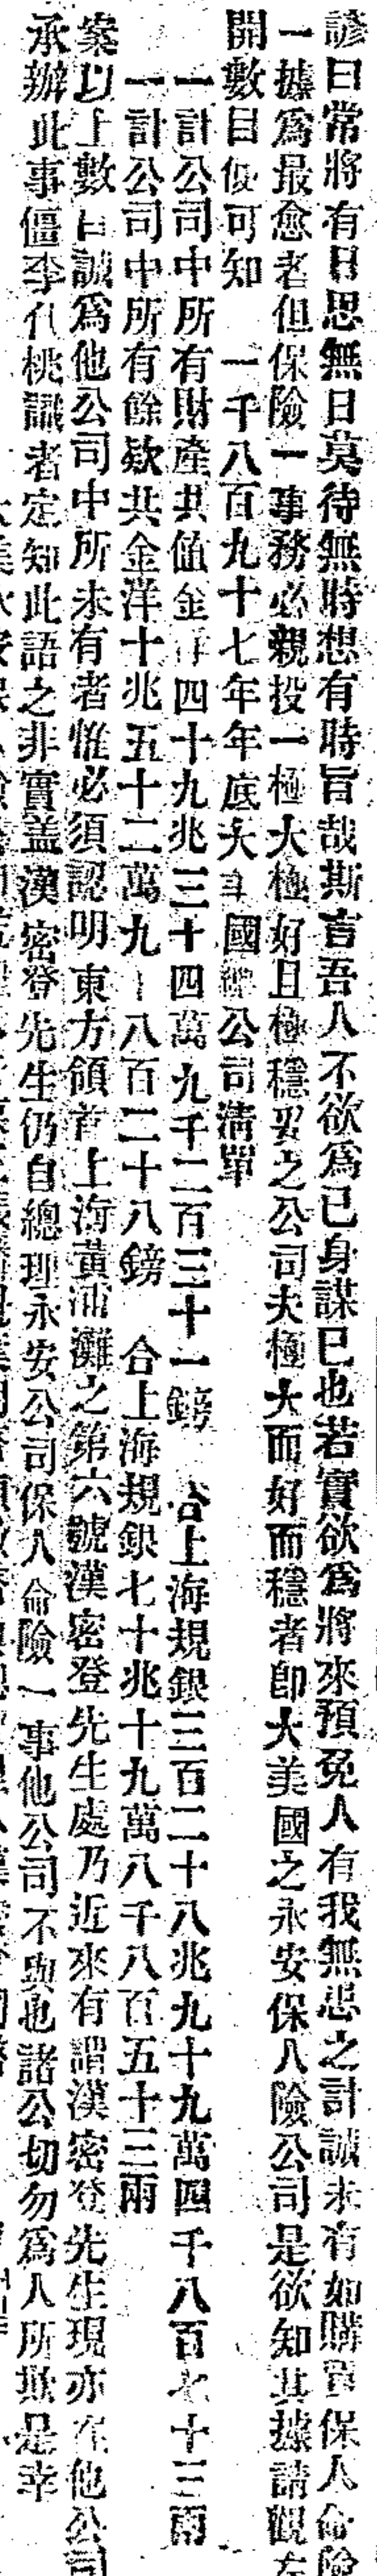 諺曰常將有日思無日莫待無時想有時旨哉斯言吾人不欲爲已身謀已也若實欲爲將來預免人有我無患之計誠未有如購買保人命險
一據爲最愈者但保險一事務必親投一極大極好且極穩妥之公司夫極大而好而穩者卽大美國之永安保人險公司是欲知其據請觀左
開數目便可知　一千八百九十七年年底大美國公司淸單
一計公司中所有財產共值金洋四十九兆三十四萬九千二百三十一鎊　合上海規銀三百二十八兆九十九萬四千八百七十三兩
一計公司中所有餘欵共金洋十兆五十二萬九千八百二十八鎊　合上海規銀七十兆十九萬八千八百五十三兩
案以上數目誠爲他公司中所未有者惟必須認明東方領首上海黃浦灘之第六號漢密登先生處乃近來有謂漢密登先生現亦在他公司
承辦此事僵李代桃識者定知此語之非實蓋漢密登先生仍自總理永安公司保人命險一事他公司不與也諸公切勿爲人所欺是幸